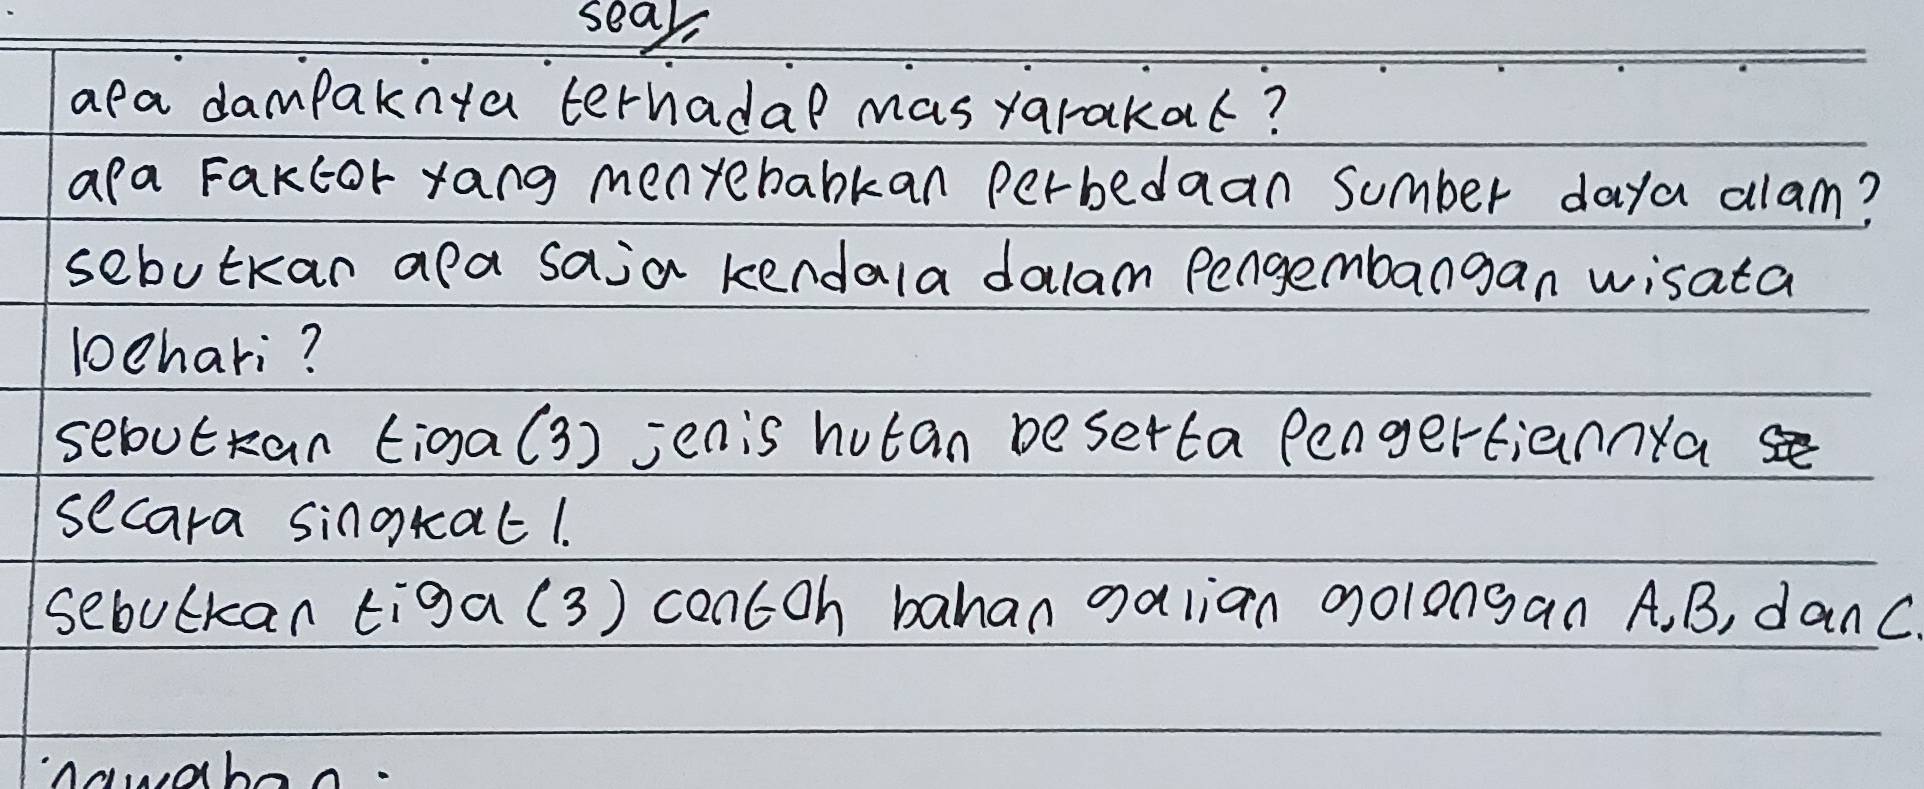 soal
apa dampaknya terhadap masyarakat?
apa Faktor yang menyebabkan perbedaan sumber daya alam?
sebutkan apa saja kendala dalam pengembangan wisata
lochari?
sebutkan tiga (3) jenis hutan beserta pengertiannya
secara singkat!.
sebutkan tiga (3) contoh bahan galian golongan A, B, dan C.
Jawaban: